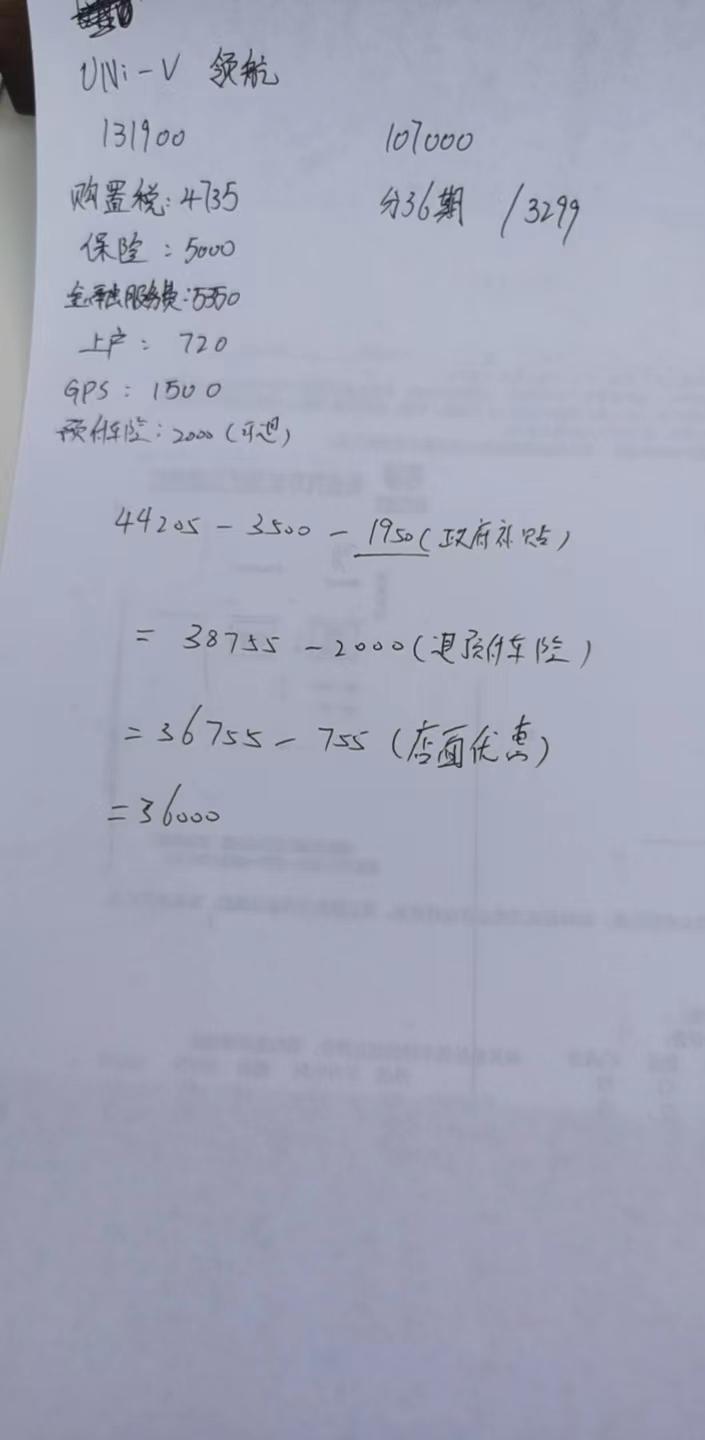 UNi-V 领航
131900 107000
购置税:4735 分36期 /3299
保险:5000
金融服务费:5350
上户:720
GPS:1500
预付车险:2000(可退)
44205-3500-1950(政府补贴)
=38755-2000(退预付车险)
=36755-755(店面优惠)
=36000